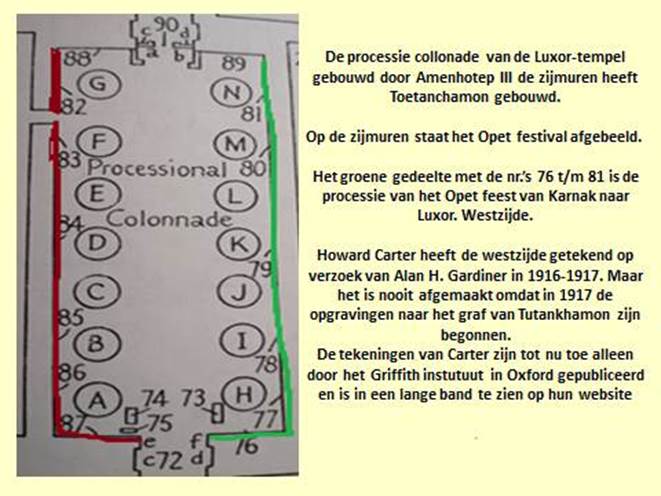 90
c d
a b
88
89
G
N
82
81
F
M
83
Processional 80
E
L
84
Colonnade
D
K
79
C
J
85
B
I
86
78
A
74 73
H
75
77
87
e f
76
c 72 d
De processie collonade van de Luxor-tempel
gebouwd door Amenhotep III de zijmuren heeft
Toetanchamon gebouwd.
Op de zijmuren staat het Opet festival afgebeeld.
Het groene gedeelte met de nr.'s 76 t/m 81 is de
processie van het Opet feest van Karnak naar
Luxor. Westzijde.
Howard Carter heeft de westzijde getekend op
verzoek van Alan H. Gardiner in 1916-1917. Maar
het is nooit afgemaakt omdat in 1917 de
opgravingen naar het graf van Tutankhamon zijn
begonnen.
De tekeningen van Carter zijn tot nu toe alleen
door het Griffith instutuut in Oxford gepubliceerd
en is in een lange band te zien op hun website